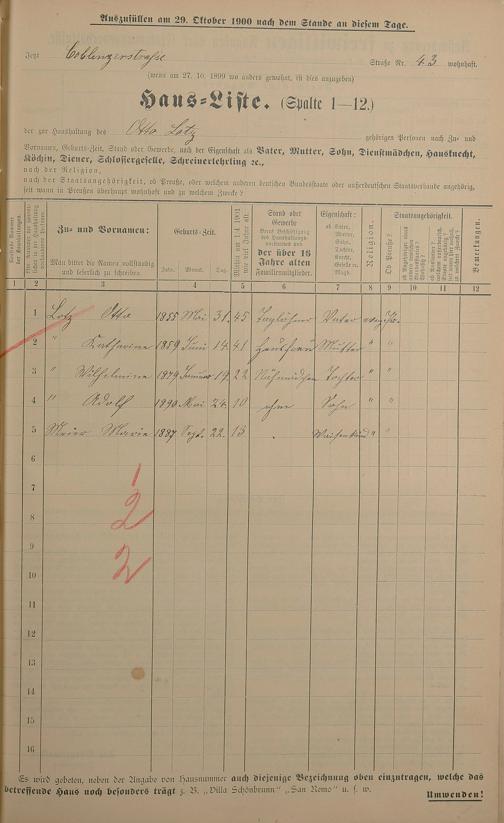 Auszufüllen am 29. Oktober 1900 nach dem Stande an diesem Tage.
Jetzt Coblenzerstraße Straße Nr. 43 wohnhaft.
(wenn am 27. 10. 1899 wo anders gewohnt, ist dies anzugeben)
Haus-Liste. (Spalte 1—12.)
der zur Haushaltung des Otto Lotz gehörigen Personen nach Zu- und
Vornamen, Geburts-Zeit, Stand oder Gewerbe, nach der Eigenschaft als Vater, Mutter, Sohn, Dienstmädchen, Hausknecht,
Köchin, Diener, Schlossergeselle, Schreinerlehrling ec.,
nach der Religion,
nach der Staatsangehörigkeit, ob Preuße, oder welchem anderen deutschen Bundesstaate oder außerdeutschen Staatsverbande angehörig,
seit wann in Preußen überhaupt wohnhaft und zu welchem Zwecke?
Zu- und Vornamen:
Man bittet die Namen vollständig und leserlich zu schreiben.
Geburts-Zeit.
Jahr. Monat. Tag.
Stand oder Gewerbe
der über 16 Jahre alten Familienmitglieder.
Eigenschaft:
ob Vater, Mutter, Sohn, Tochter,
Religion.
Staatsangehörigkeit.
Ob Preuße?
Bemerkungen.
1 2 3 4 5 6 7 8 9 10 11 12
1 Lotz Otto 1855 Mai 31. 45 Taglöhner Vater
2 " Katharine 1859 Juni 14. 41 Hausfrau Mutter " "
3 " Wilhelmine 1879 Januar 19. 22 Nähmädchen Tochter " "
4 " Adolf 1890 Mai 24. 10 ohne Sohn " "
5 Meier Marie 1887 Sept. 22. 13 Waisenkind " "
6
7 1
8 2
9
10 2
11
12
13
14
15
16
Es wird gebeten, neben der Angabe von Hausnummer auch diejenige Bezeichnung oben einzutragen, welche das
betreffende Haus noch besonders trägt z. B. „Villa Schönbrunn" „San Remo" u. s. w.
Umwenden!